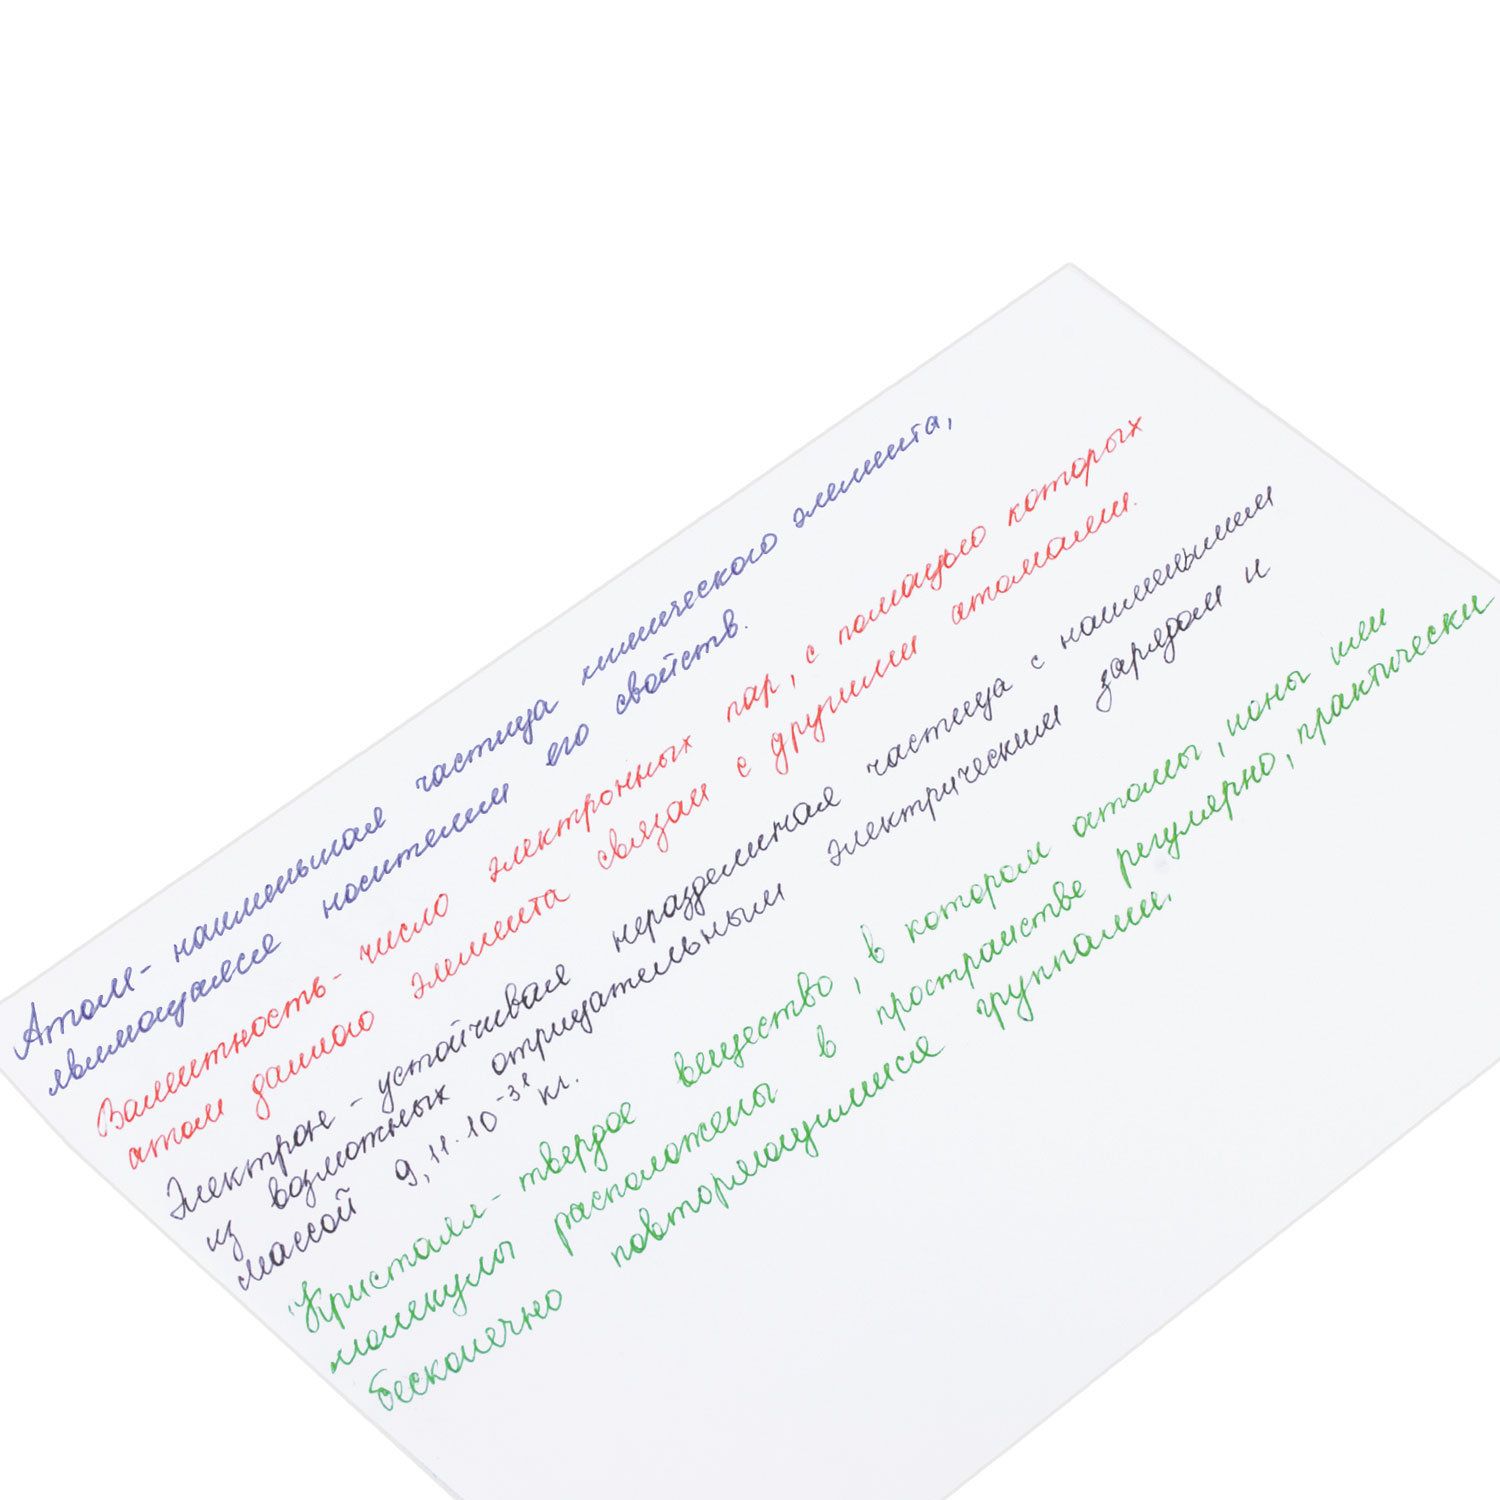 Атом - наименьшая частица химического элемента,
являющаяся носителем его свойств.
Валентность - число электронных пар, с помощью которых
атом данного элемента связан с другими атомами.
Электрон - устойчивая неразделимая частица с наименьшим
из возможных отрицательным электрическим зарядом и
массой 9,11·10⁻³¹ кг.
Кристалл - твердое вещество, в котором атомы, ионы или
молекулы расположены в пространстве регулярно, практически
бесконечно повторяющимися группами.